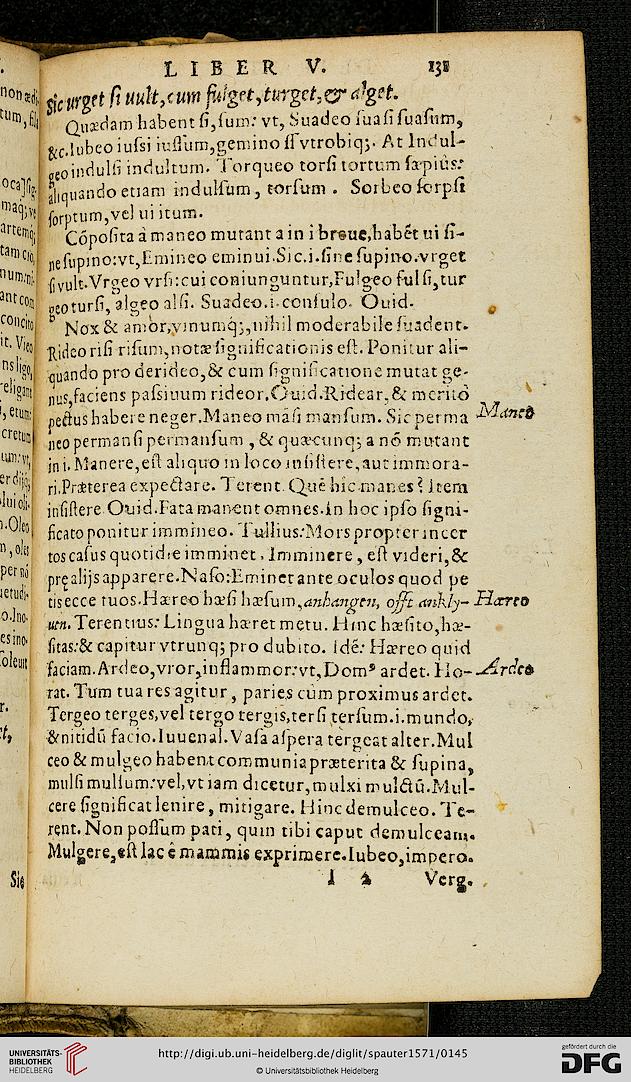 LIBER V. 131
Sic urget si uult, cum fulget, turget, & alget.
Quædam habent si, sum: vt, Suadeo suasi suasum,
&c. Iubeo iussi iussum, gemino ss vtrobiq;. At Indul-
geo indulsi indultum. Torqueo torsi tortum sæpiùs:
aliquando etiam indulsum, torsum. Sorbeo sorpsi
sorptum, vel ui itum.
Cōposita à maneo mutant a in i breue, habēt ui si-
ne supino: vt, Emineo eminui. Sic. i. sine supino. vrget
si vult. Vrgeo vrsi: cui coniunguntur, Fulgeo fulsi, tur
geo tursi, algeo alsi. Suadeo. i. consulo. Ouid.
Nox & amor, vinumq́;, nihil moderabile suadent.
Rideo risi risum, notæ significationis est. Ponitur ali-
quando pro derideo, & cum significatione mutat ge-
nus, faciens passiuum rideor. Ouid. Ridear, & meritò
pectus habere neger. Maneo māsi mansum. Sic perma
neo permansi permansum, & quæcunq; a nō mutant
in i. Manere, est aliquo in loco insistere, aut immora-
ri. Præterea expectare. Terent. Quē hic manes? Item
insistere Ouid. Fata manent omnes. In hoc ipso signi-
ficato ponitur immineo. Tullius: Mors propter incer
tos casus quotidie imminet. Imminere, est videri, &
prę alijs apparere. Naso: Eminet ante oculos quod pe
tis ecce tuos. Hæreo hæsi hæsum, anhangen, offt ankly-
uen. Terentius: Lingua hæret metu. Hinc hæsito, hæ-
sitas: & capitur vtrunq; pro dubito. Idē: Hæreo quid
faciam. Ardeo, vror, inflammor: vt, Domꝰ ardet. Ho-
rat. Tum tua res agitur, paries cùm proximus ardet.
Tergeo terges, vel tergo tergis, tersi tersum. i. mundo,
& nitidū facio. Iuuenal. Vasa aspera tergeat alter. Mul
ceo & mulgeo habent communia præterita & supina,
mulsi mulsum: vel, vt iam dicetur, mulxi mulctū. Mul-
cere significat lenire, mitigare. Hinc demulceo. Te-
rent. Non possum pati, quin tibi caput demulceam.
Mulgere, est lac è mammis exprimere. Iubeo, impero.
I 2 Verg.
Maneo
Hæreo
Ardeo
UNIVERSITÄTS-
BIBLIOTHEK
HEIDELBERG
http://digi.ub.uni-heidelberg.de/diglit/spauter1571/0145
© Universitätsbibliothek Heidelberg
gefördert durch die
DFG